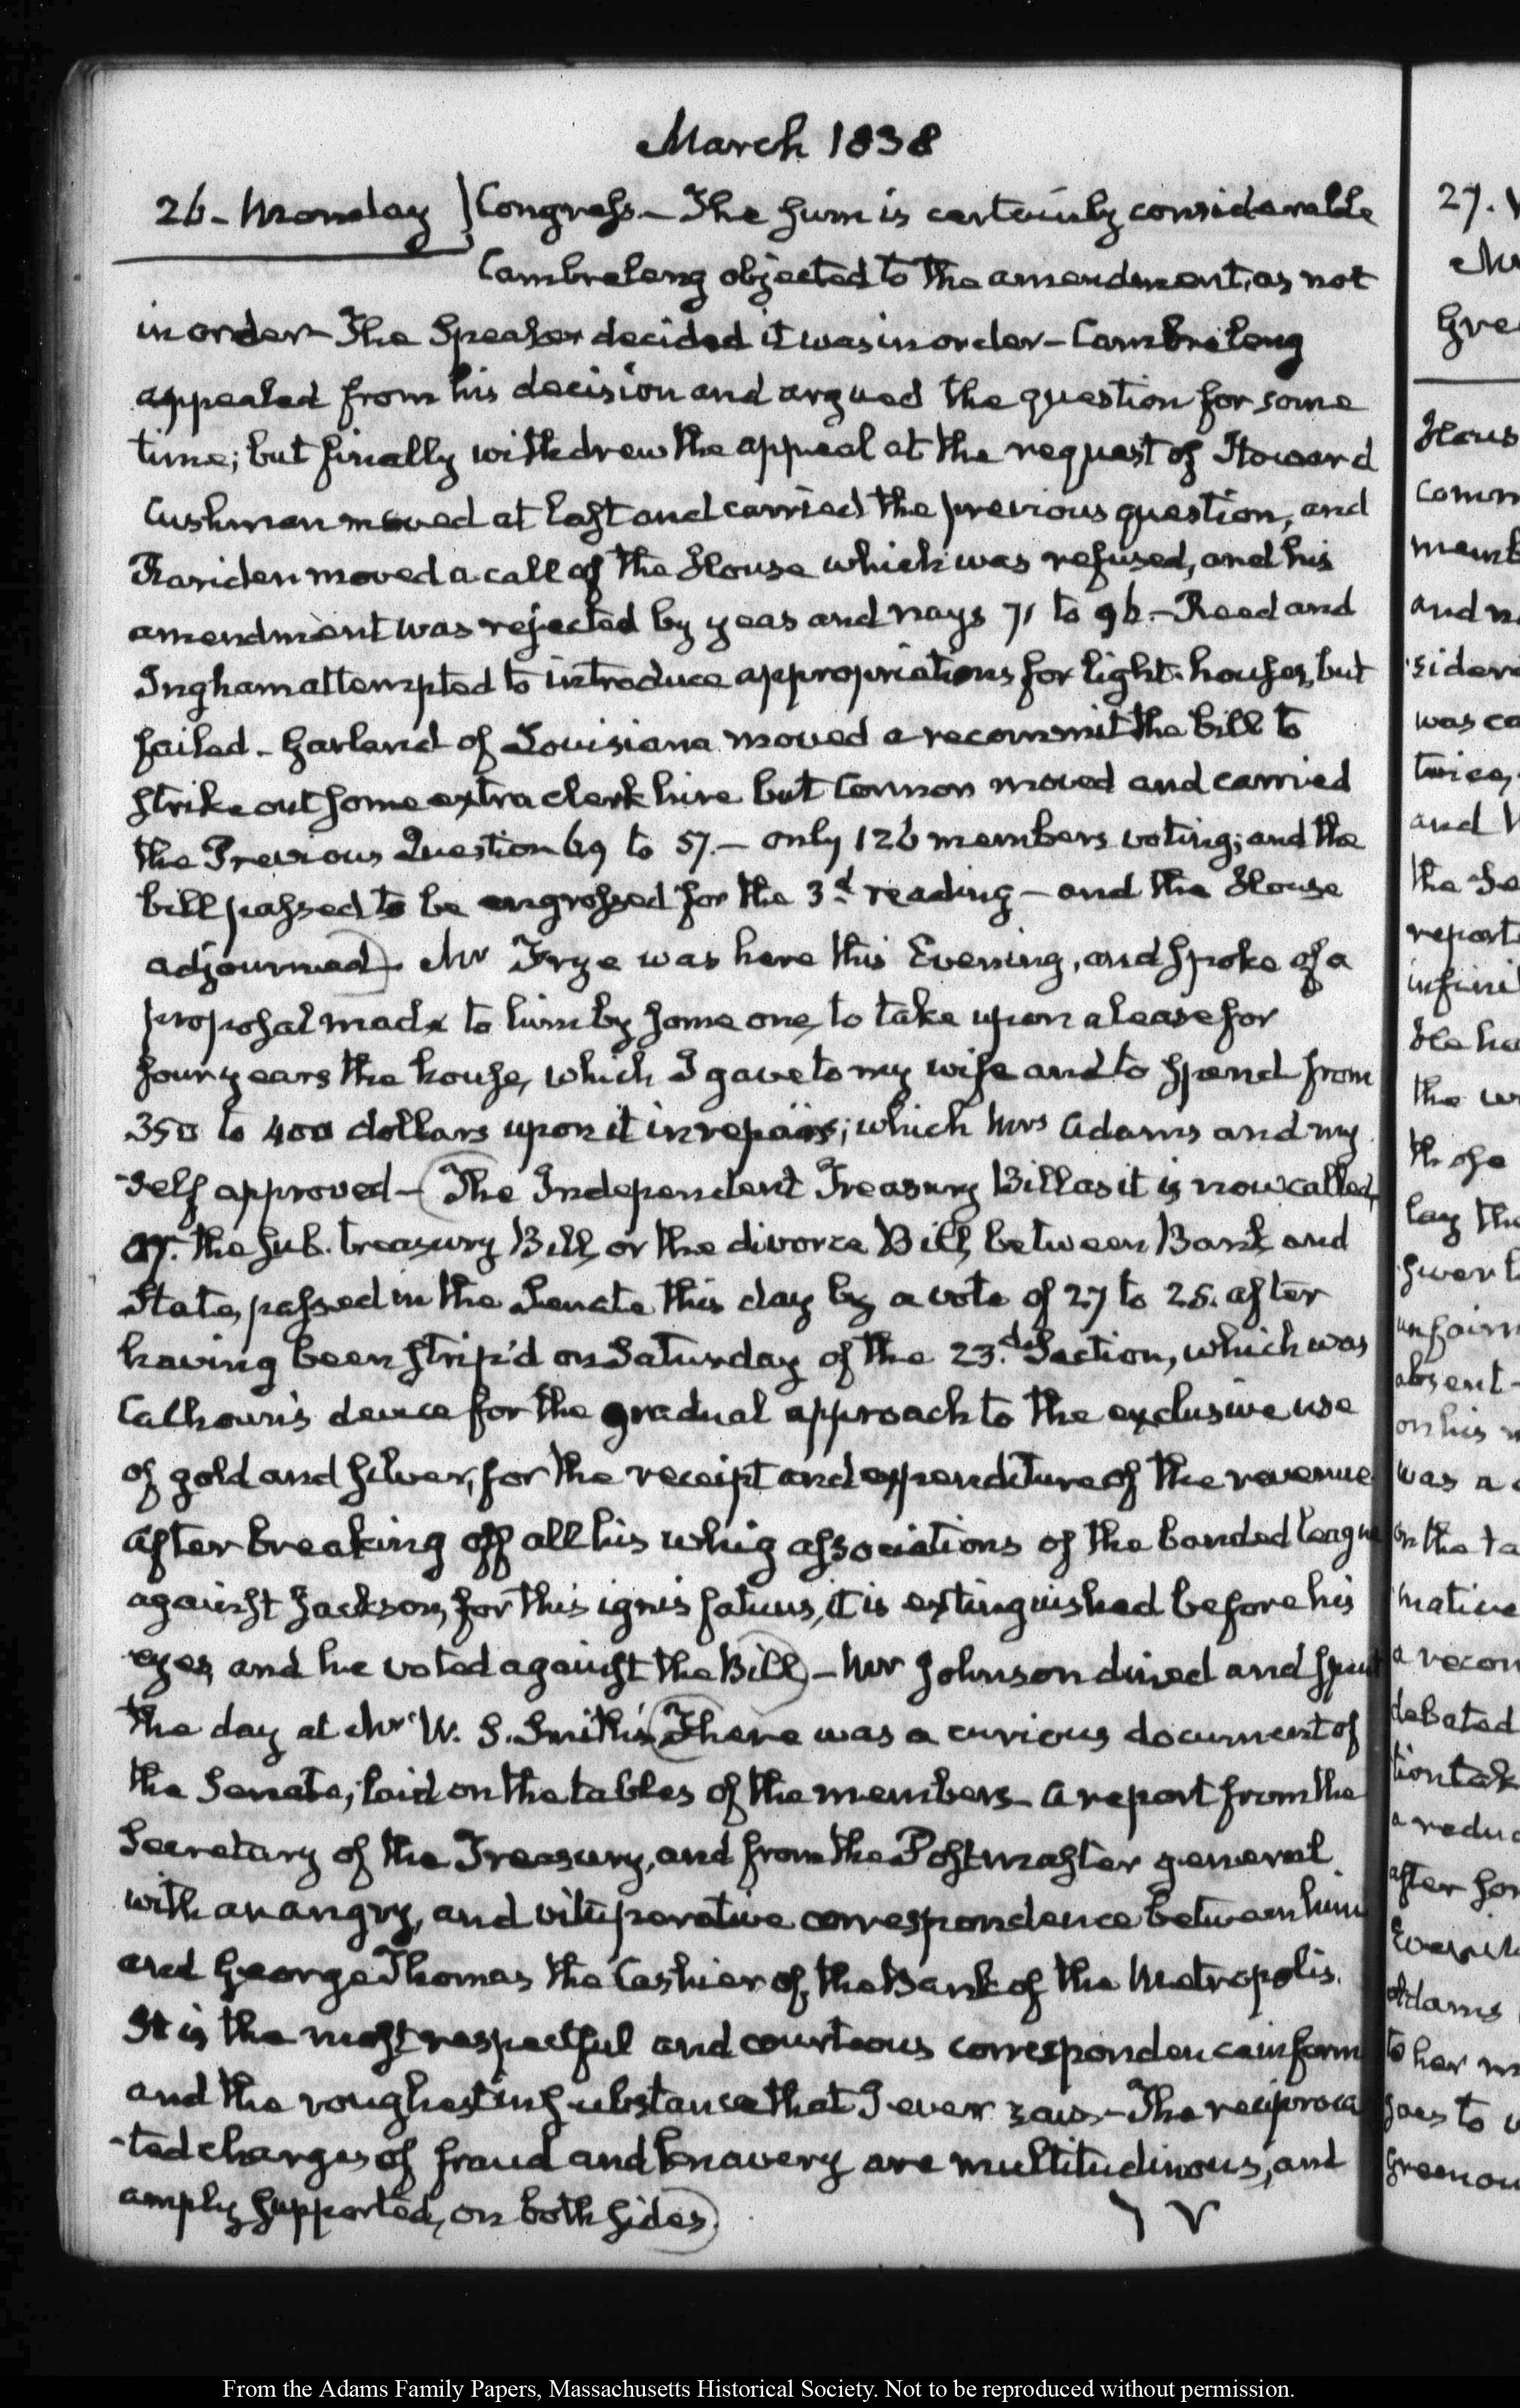 March 1838
26. Monday } Congress. - The sum is certainly considerable
Cambreleng objected to the amendment, as not
in order - The Speaker decided it was in order - Cambreleng
appealed from his decision and argued the question for some
time; but finally withdrew the appeal at the request of Howard
Cushman moved at last and carried the previous question, and
Rariden moved a call of the House which was refused, and his
amendment was rejected by yeas and nays 71 to 96. - Reed and
Ingham attempted to introduce appropriations for light-houses, but
failed - Garland of Louisiana moved a recommit the bill to
strike out some extra clerk hire but Connor moved and carried
the Previous Question 69 to 57. - only 126 members voting; and the
bill passed to be engrossed for the 3d reading - and the House
adjourned) Mr Frye was here this Evening, and spoke of a
proposal made to him by some one, to take upon a lease for
four years the house, which I gave to my wife and to spend from
350 to 400 dollars upon it in repairs; which Mrs Adams and my
-self approved - (The Independent Treasury Bill as it is now called,
or the sub. treasury Bill, or the divorce Bill, between Bank and
State, passed in the Senate this day by a vote of 27 to 25. after
having been strip'd on Saturday of the 23.d Section, which was
Calhoun's device for the gradual approach to the exclusive use
of gold and silver, for the receipt and expenditure of the revenue
after breaking off all his whig associations of the banded league
against Jackson, for this ignis fatuus, it is extinguished before his
eyes, and he voted against the Bill) - Mr Johnson dined and spent
the day at Mr W. S. Smith's (There was a curious document of
the Senate, laid on the tables of the members - a report from the
Secretary of the Treasury, and from the Postmaster general
with an angry, and vituperative correspondence between him
and George Thomas the Cashier of the Bank of the Metropolis.
It is the most respectful and courteous correspondence in form
and the roughest in substance that I ever saw. - The reciproca
-ted charges of fraud and knavery are multitudinous, and
amply supported, on both sides)
27.
Hous
comm
memb
and
sider
was ca
twice,
and
the Se
report
infini
He ha
the
those
lay the
swer
unfair
absent -
on his
was a
on the ta
mative
a recon
debated
tion tak
a redu
after
Adams
to her
goes to
From the Adams Family Papers, Massachusetts Historical Society. Not to be reproduced without permission.